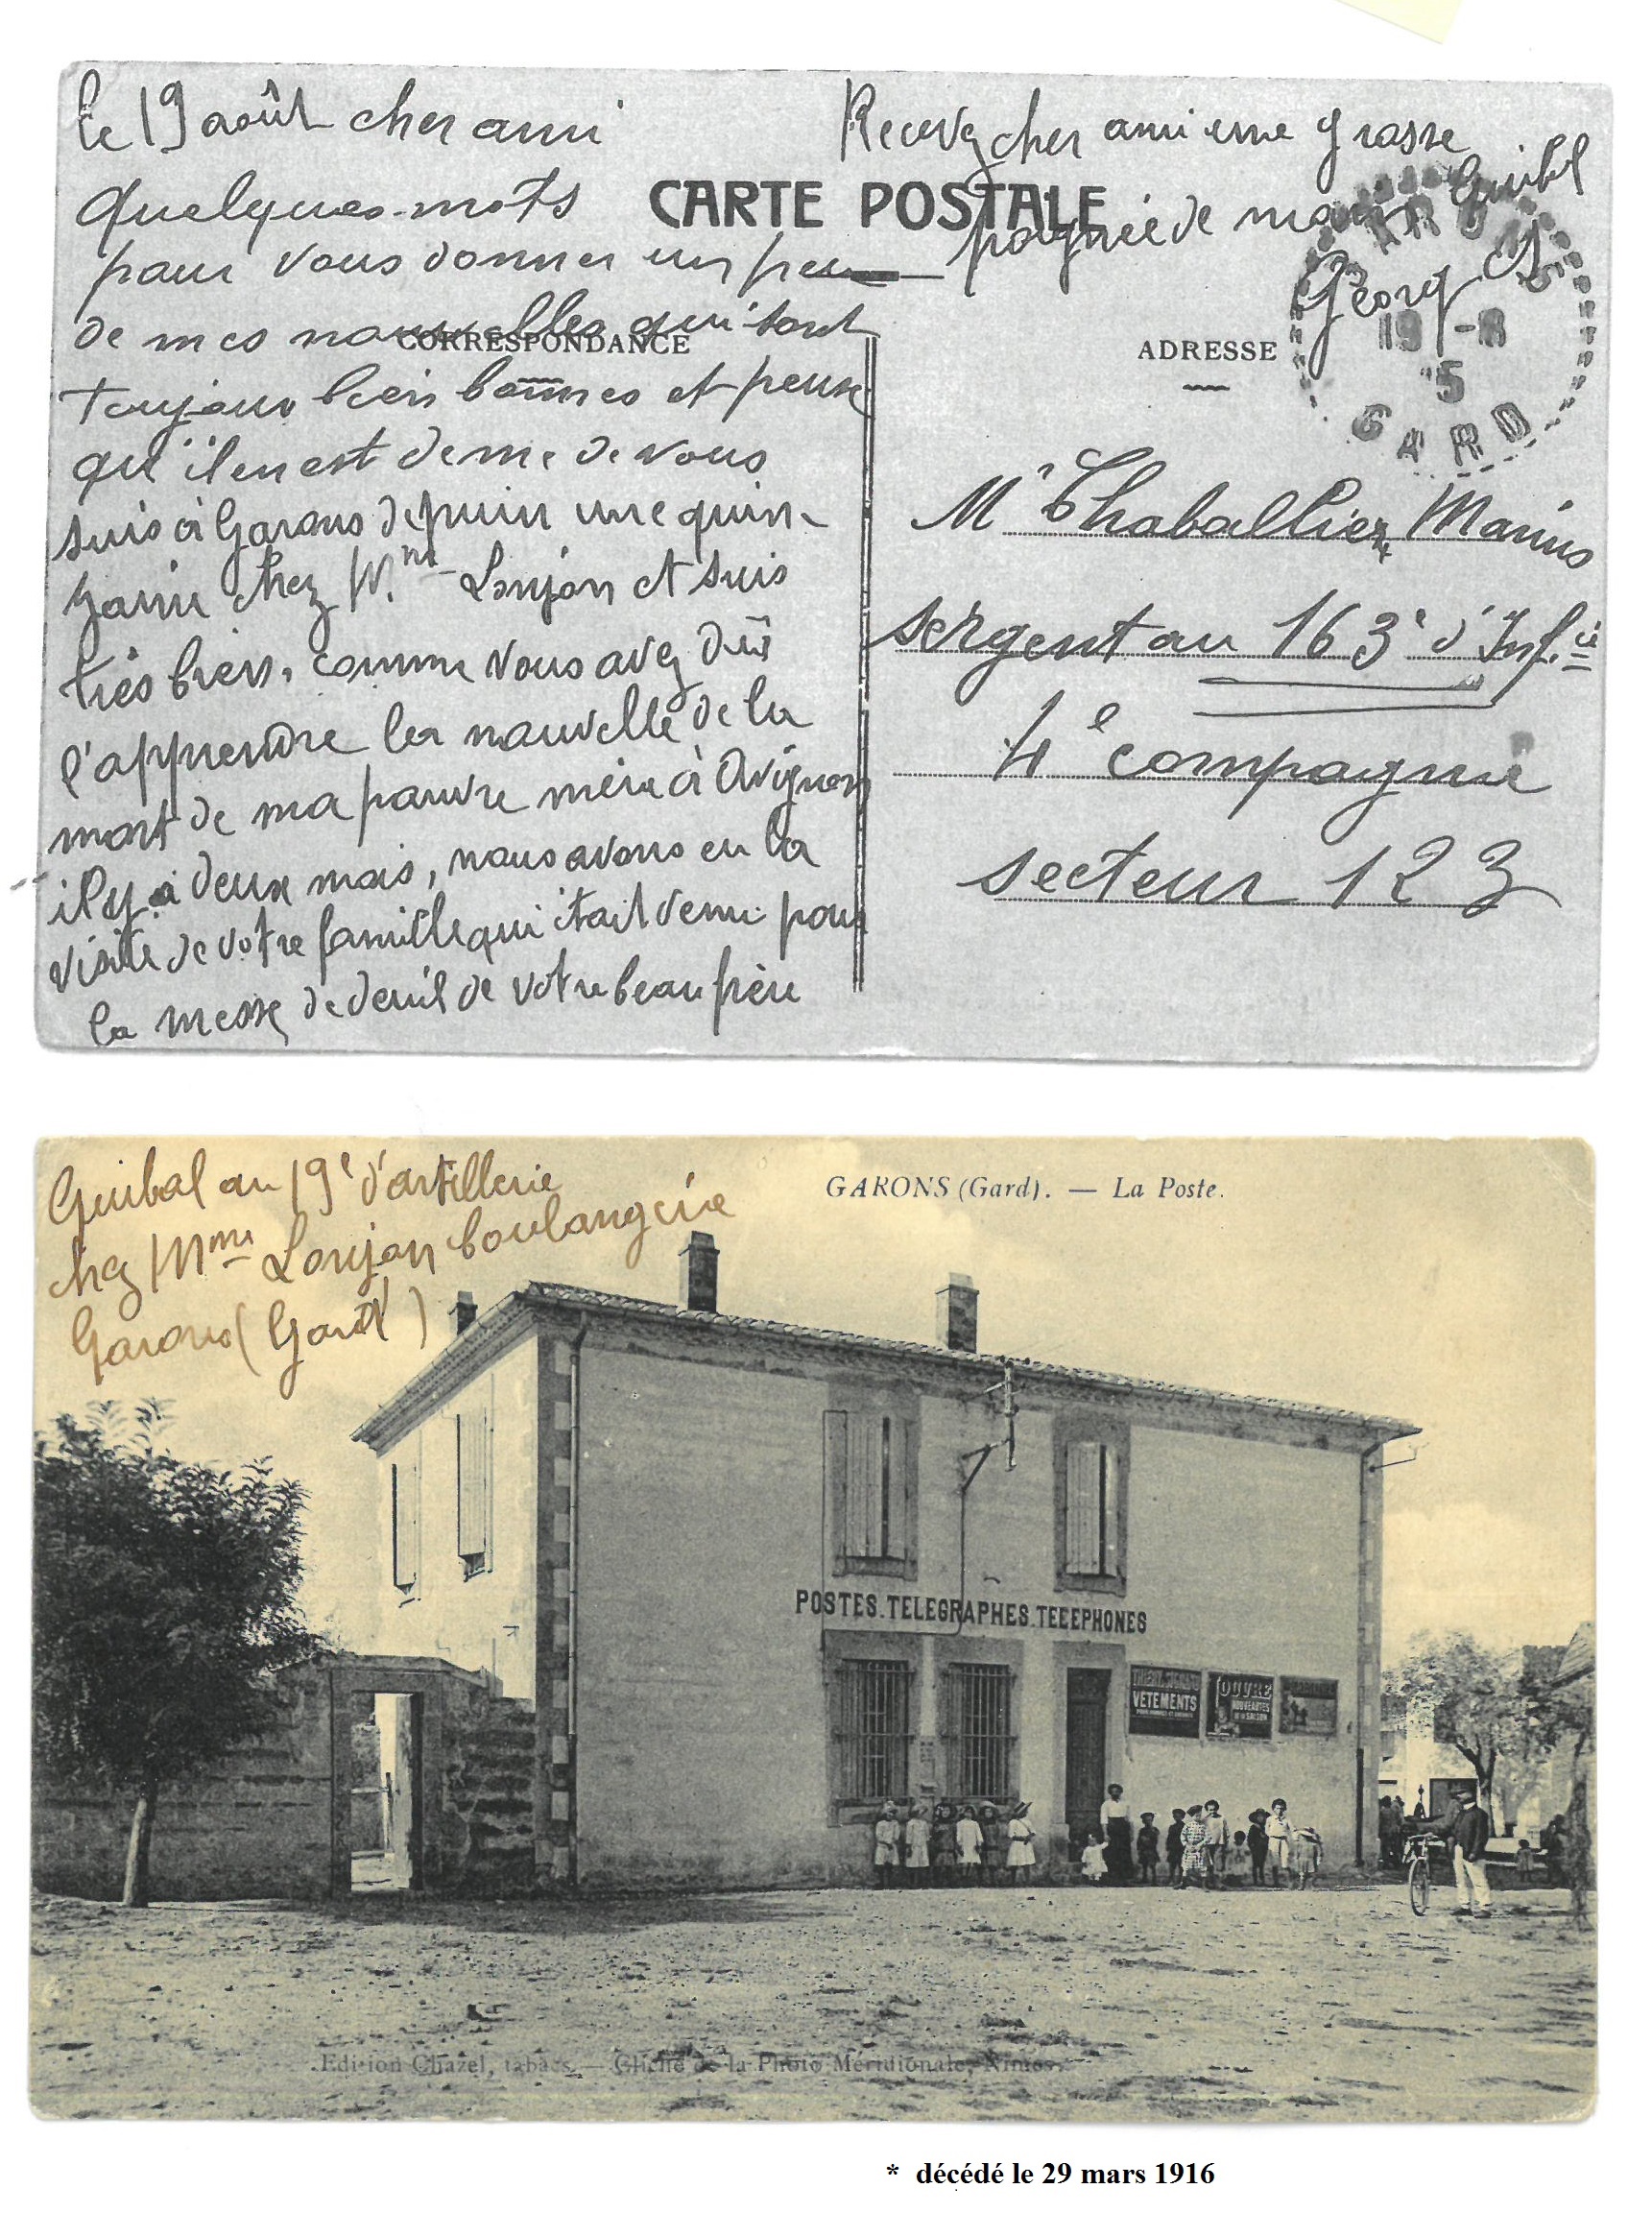 le 19 août cher ami
quelques mots
pour vous donner un peu
de mes nouvelles qui sont
toujour bien bonnes et pense
qu'il en est de me de vous
suis à Garons depuin une quin-
zaine chez Mme Loujon et suis
très bien, comme vous avez dûs
l'apprendre la nouvelle de la
mort de ma pauvre mère à Avignon
il y a deux mois, nous avons eu la
visite de votre famille qui était venu pour
la messe de deuil de votre beau frère
Recevez cher ami une grasse
poignée de main Guibal
Georges
CARTE POSTALE
CORRESPONDANCE
ADRESSE
GARONS
19 -8
15
GARD
Mr Chaballier Marius
sergent au 163e d'Inf.ie
4e compagnie
secteur 123
Guibal au 19e d'artillerie
chez Mme Loujon boulangerie
Garons (Gard)
GARONS (Gard). — La Poste.
POSTES.TELEGRAPHES.TELEPHONES
VÊTEMENTS
LOUVRE
NOUVEAUTÉS
DE LA SAISON
Edition Chazel, tabacs. — Cliché de la Photo Méridionale, Nimes.
* décédé le 29 mars 1916